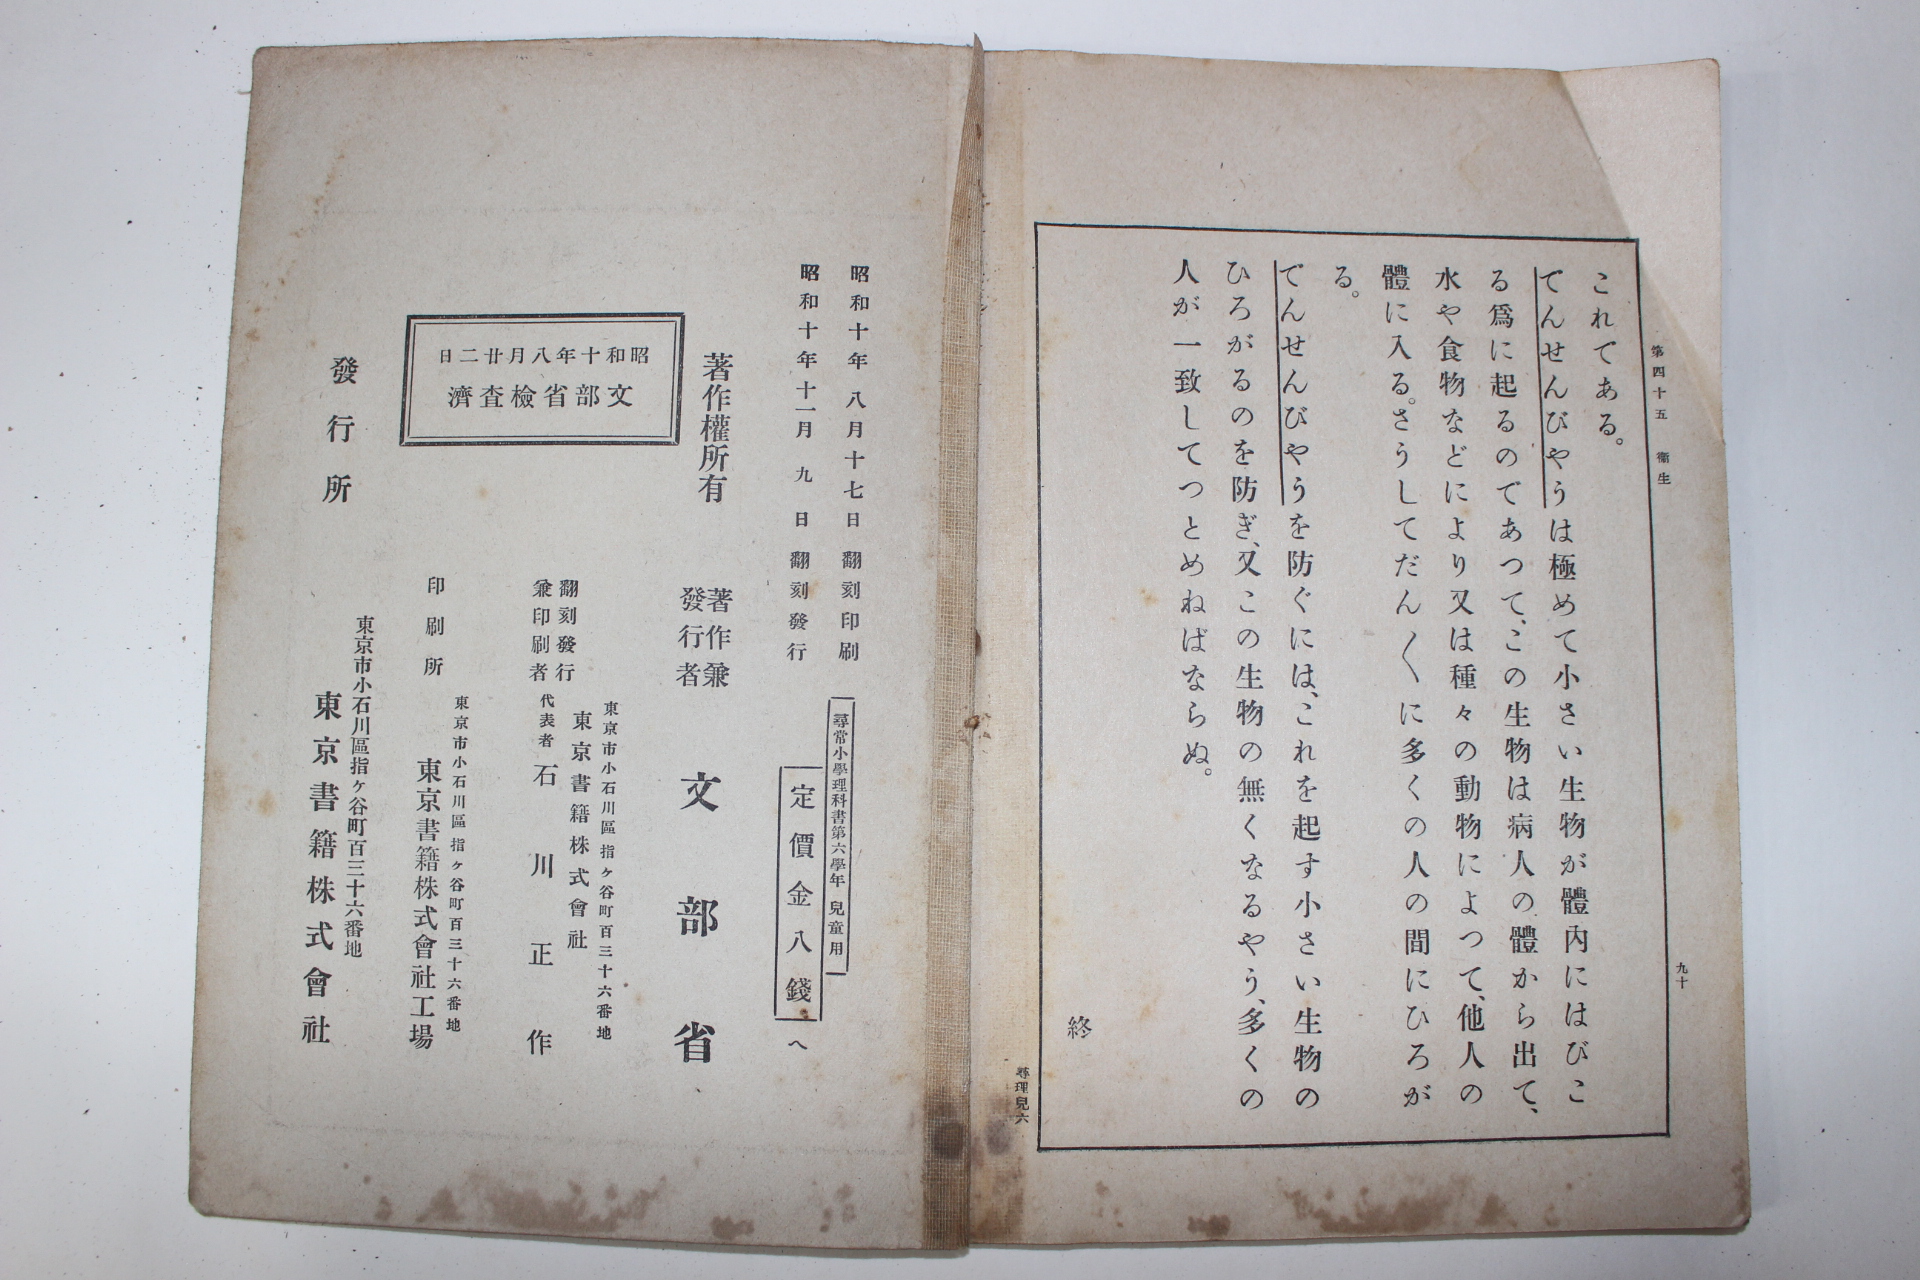 第四十五　衞生
九十
これである。
でんせんびやうは極めて小さい生物が體內にはびこ
る爲に起るのであつて、この生物は病人の體から出て、
水や食物などにより又は種々の動物によつて、他人の
體に入る。さうしてだん〱に多くの人の間にひろが
る。
でんせんびやうを防ぐには、これを起す小さい生物の
ひろがるのを防ぎ、又この生物の無くなるやう、多くの
人が一致してつとめねばならぬ。
終
尋理兒六
昭和十年八月十七日翻刻印刷
昭和十年十一月九日翻刻發行
尋常小學理科書第六學年兒童用
定價金八錢
へ
著作權所有
著作兼
發行者
文部省
昭和十年八月廿二日
文部省檢査濟
翻刻發行
兼印刷者
東京市小石川區指ヶ谷町百三十六番地
東京書籍株式會社
代表者石川正作
印刷所
東京市小石川區指ヶ谷町百三十六番地
東京書籍株式會社工場
發行所
東京市小石川區指ヶ谷町百三十六番地
東京書籍株式會社